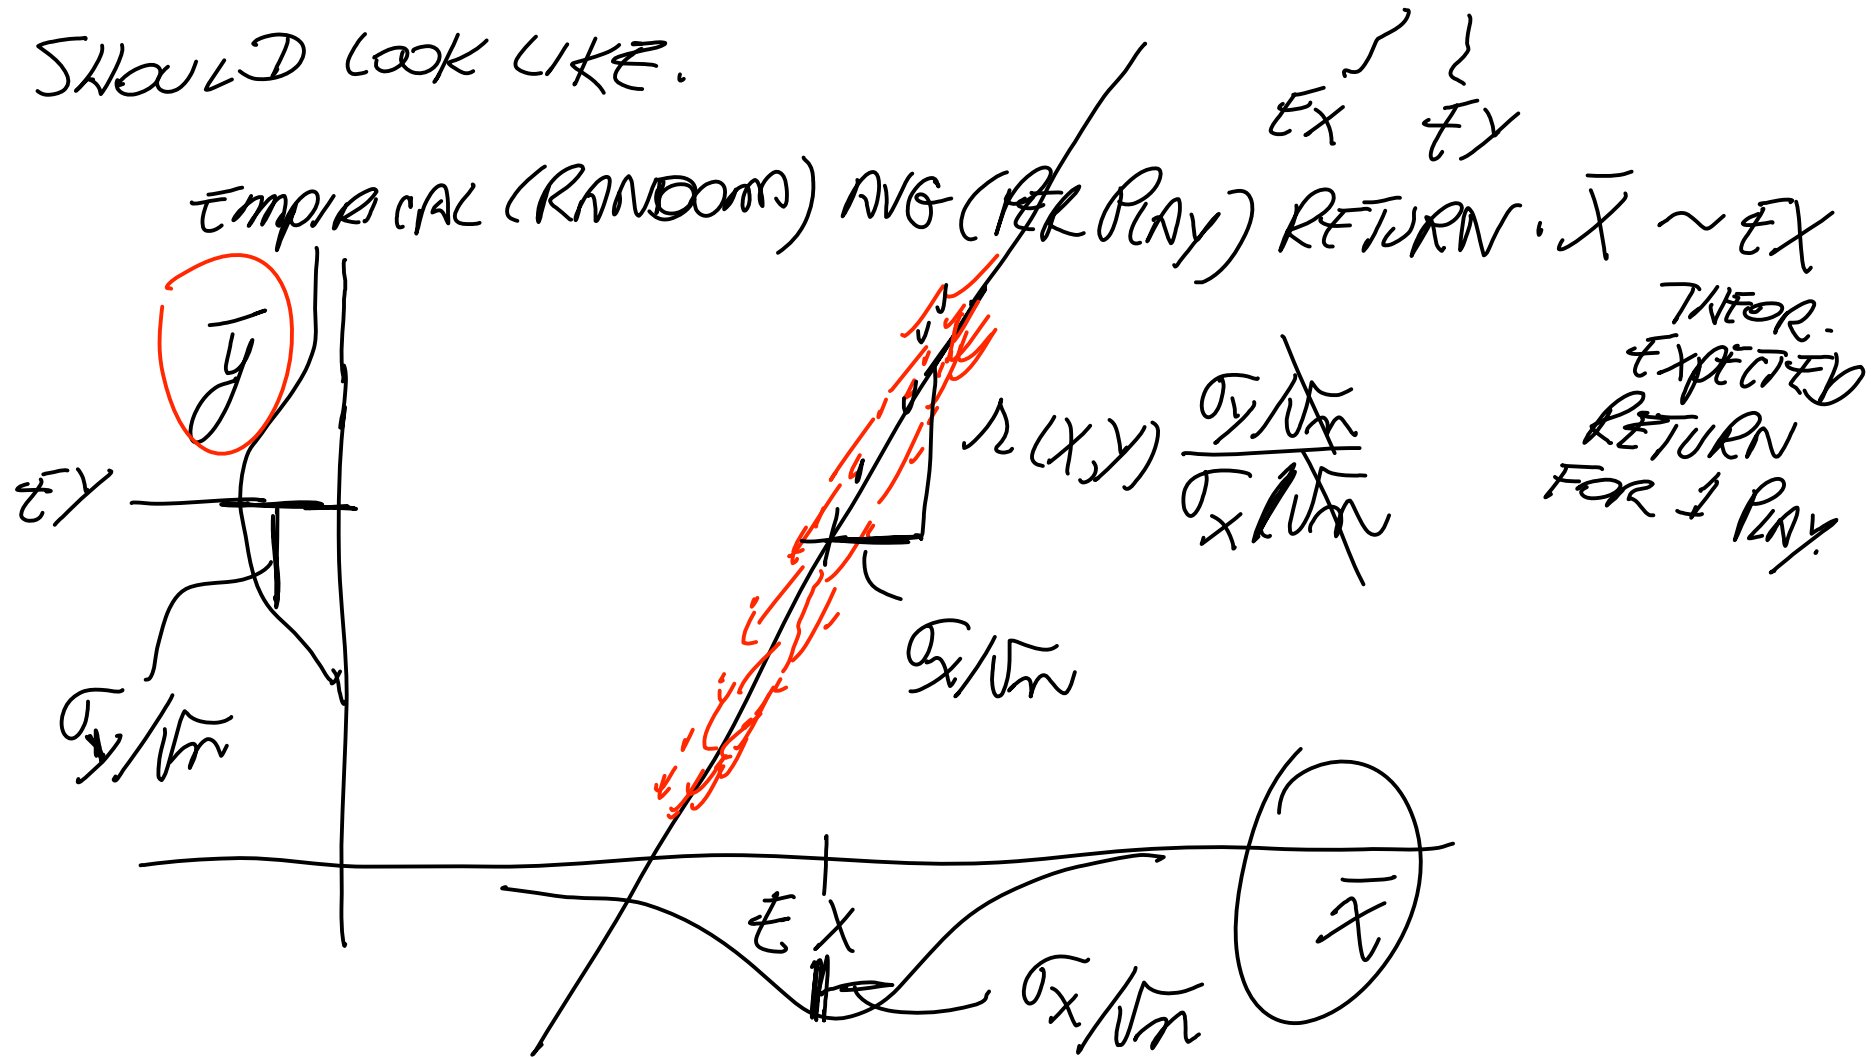 SHOULD LOOK LIKE.
EX EY
EMPIRICAL (RANDOM) AVG (PER PLAY) RETURN. X̄ ~ EX
THEOR.
EXPECTED
RETURN
FOR 1 PLAY.
ȳ
r(X,Y) σy/√n
σx/√n
EY
σx/√n
σy/√n
EX
X̄
σx/√n